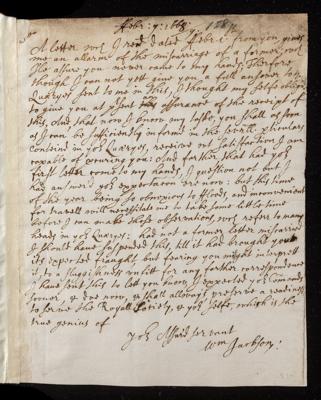 Febr: 7: 1668:
Sr
A letter wch I recd dated Febr: 1: from you, gives
me an allarm of the miscarriage of a former, wch
Ile assure you never came to my hands; Therefore
though I can not yett give you a full answer to
Quaeryes sent to me in this, I thought my selfe oblig'd
to give you at psent this assurance of the receipt of
this, And that now I know my taske, you shall as soon
as I can be sufficiently inform'd in the severll pticulars
conteind in yor Quaryes, receive wt satisfaction I am
capable of giveing you: And farther, that had yor
first letter come to my hands, I question not but I
had answerd yor expectacon ere now: but this time
of the year being so obnoxious to floods, and inconvenient
for travell will necessitate me to take some little time
before I can make those observations, wch refer to many
heads in yor Quaryes: had not a former letter miscarried
I should have suspended this, till it had brought you
its expected fraught, but fearing you might interpret
it, to a sluggishness unfitt for any further correspondence
I have sent this to lett you know I expected yor commands
sooner, & doe now, & shall allways preserve a readiness
to serve the Royall Society, & yor selfe, which is the
true genius of
yor Assured servant
Wm Jackson: